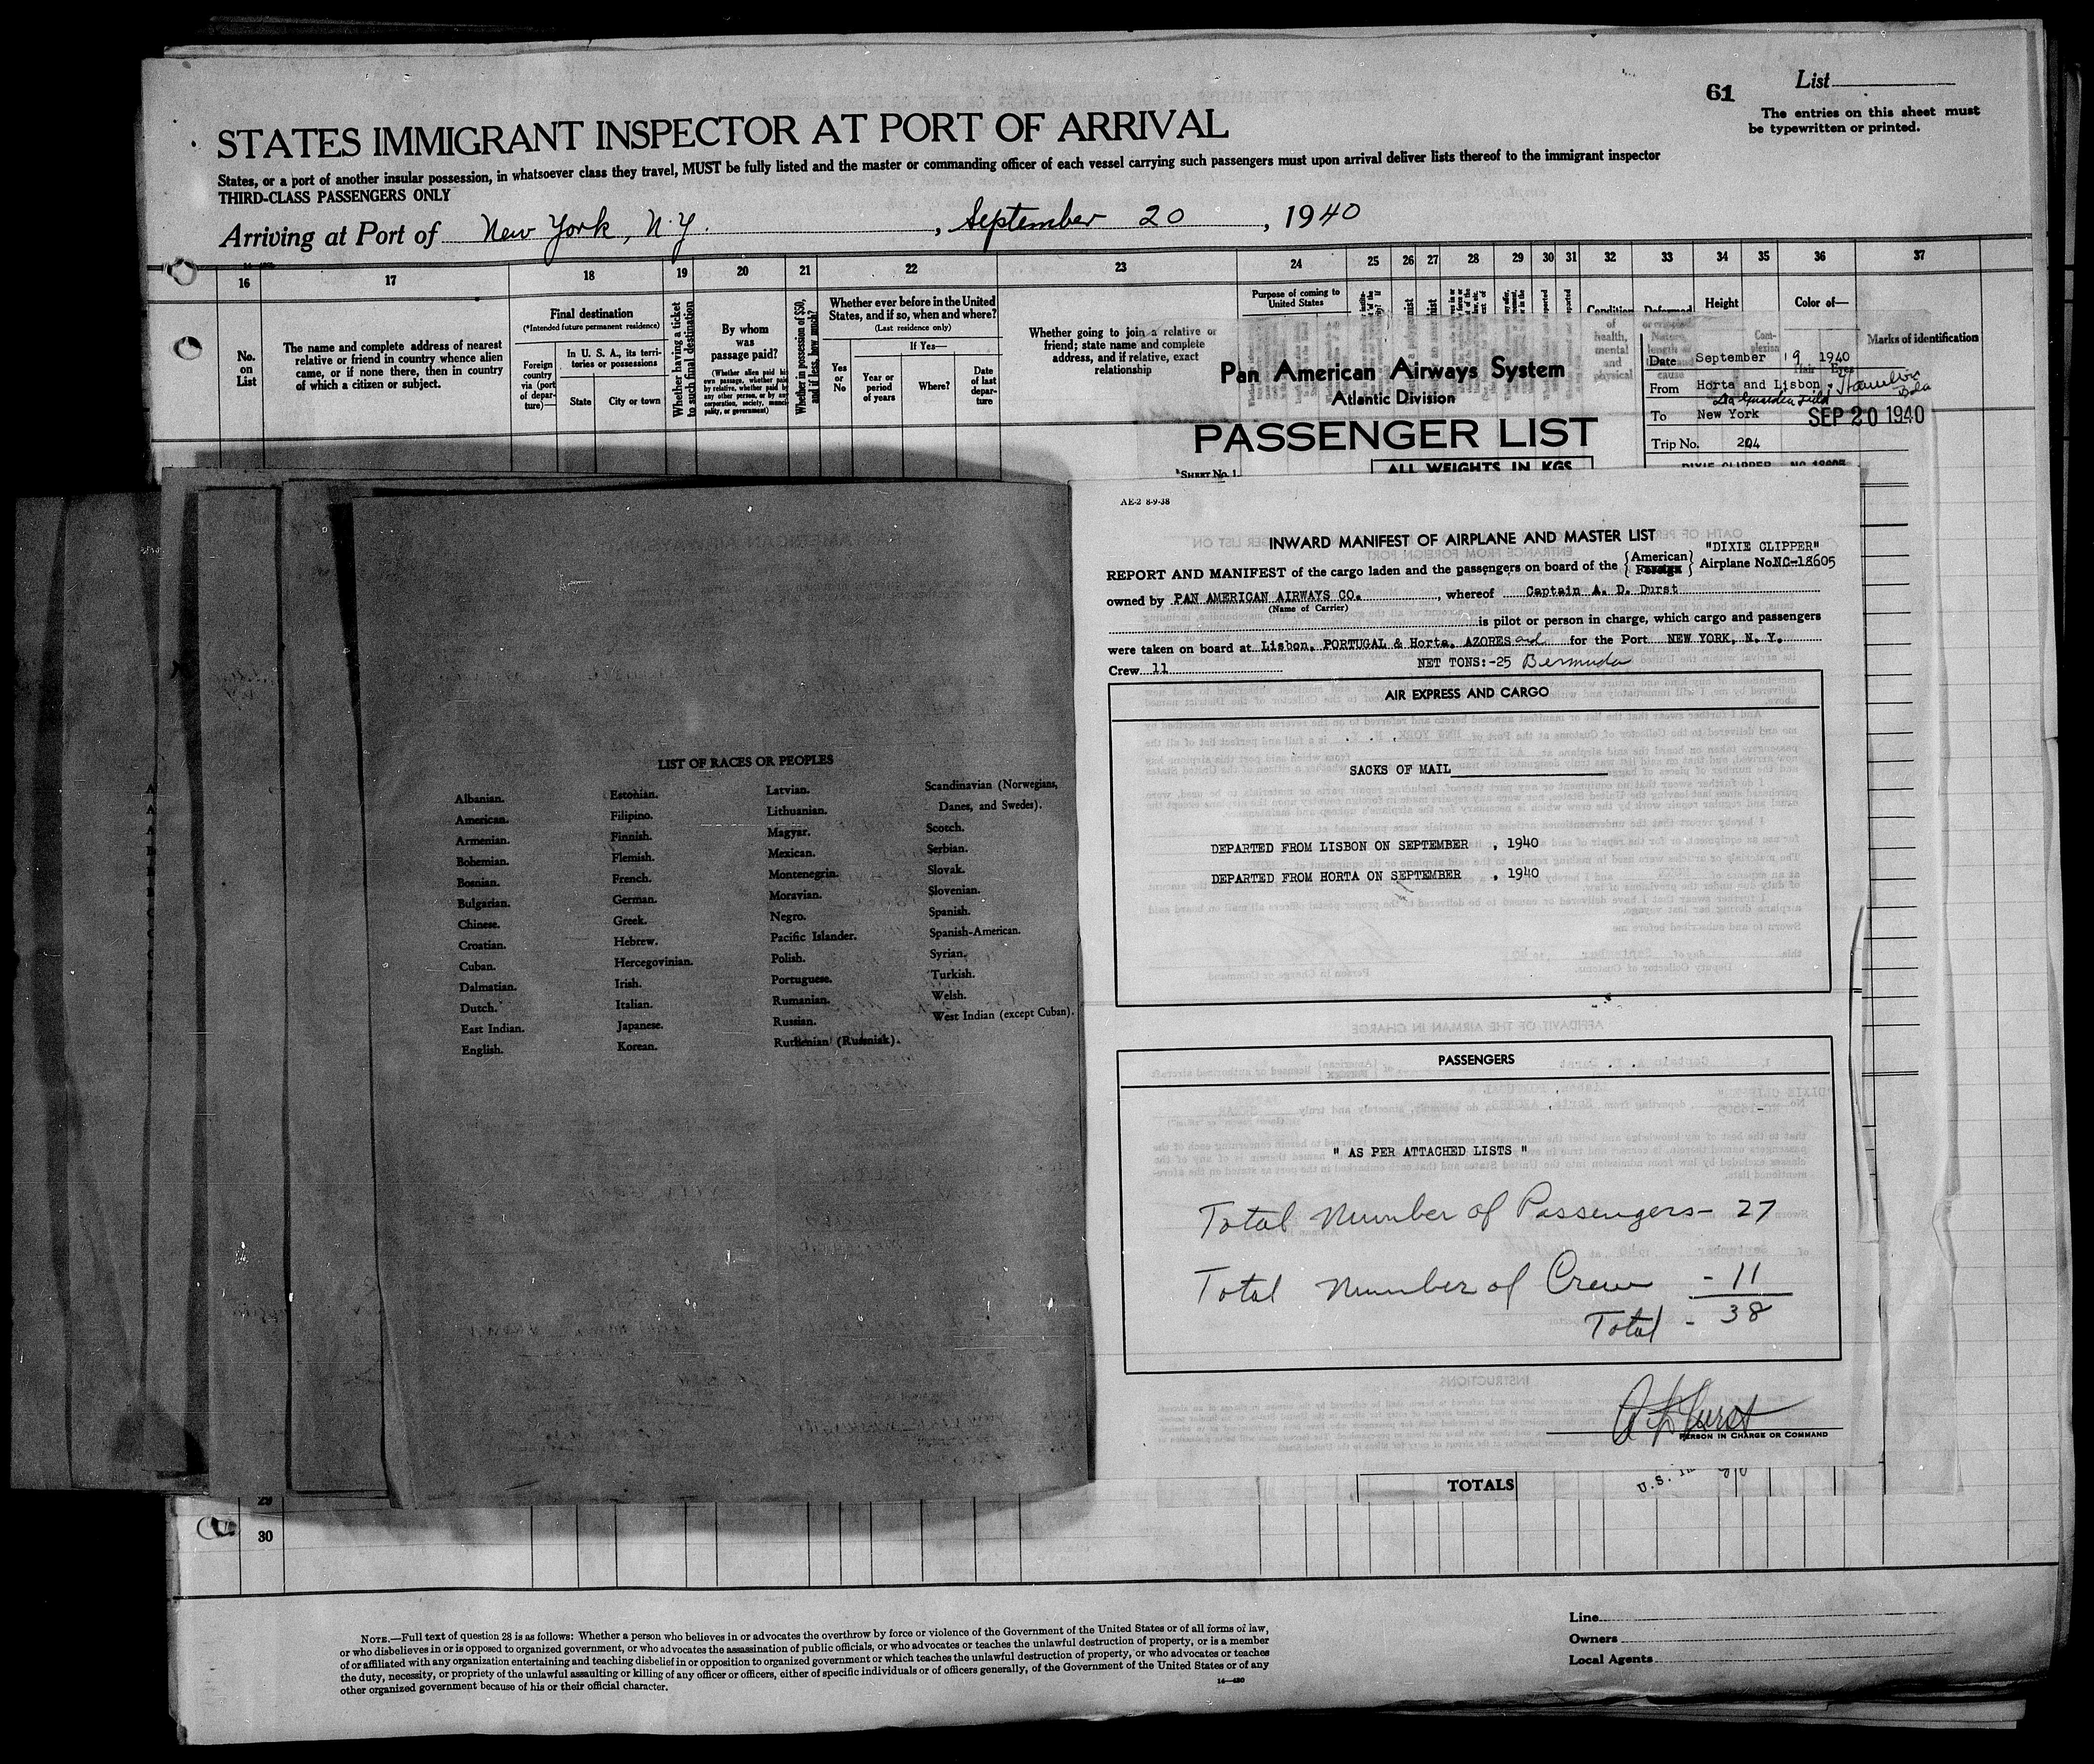 61
List
The entries on this sheet must
be typewritten or printed.
STATES IMMIGRANT INSPECTOR AT PORT OF ARRIVAL
States, or a port of another insular possession, in whatsoever class they travel, MUST be fully listed and the master or commanding officer of each vessel carrying such passengers must upon arrival deliver lists thereof to the immigrant inspector
THIRD-CLASS PASSENGERS ONLY
Arriving at Port of New York, N.Y. , September 20 , 1940
16 17 18 19 20 21 22 23 24 25 26 27 28 29 30 31 32 33 34 35 36 37
No. on List
The name and complete address of nearest
relative or friend in country whence alien
came, or if none there, then in country
of which a citizen or subject.
Final destination
(*Intended future permanent residence)
Foreign country via (port of departure)—
In U. S. A., its territories or possessions
State
City or town
Whether having a ticket to such final destination
By whom was passage paid?
(Whether alien paid his own passage, whether paid by relative, whether paid by any other person, or by any corporation, society, municipality, or government)
Whether in possession of $50, and if less, how much?
Whether ever before in the United
States, and if so, when and where?
(Last residence only)
If Yes—
Yes or No
Year or period of years
Where?
Date of last departure
Whether going to join a relative or
friend; state name and complete
address, and if relative, exact
relationship
Purpose of coming to
United States
Condition of health, mental and physical
Height
Complexion
Color of—
Hair Eyes
Marks of identification
Pan American Airways System
Atlantic Division
PASSENGER LIST
SHEET No. 1.
ALL WEIGHTS IN KGS
Date September 19 1940
From Horta and Lisbon
La Guardia Field
To New York
SEP 20 1940
Trip No. 204
DIXIE CLIPPER NO 18605
LIST OF RACES OR PEOPLES
Albanian.
American.
Armenian.
Bohemian.
Bosnian.
Bulgarian.
Chinese.
Croatian.
Cuban.
Dalmatian.
Dutch.
East Indian.
English.
Estonian.
Filipino.
Finnish.
Flemish.
French.
German.
Greek.
Hebrew.
Hercegovinian.
Irish.
Italian.
Japanese.
Korean.
Latvian.
Lithuanian.
Magyar.
Mexican.
Montenegrin.
Moravian.
Negro.
Pacific Islander.
Polish.
Portuguese.
Rumanian.
Russian.
Ruthenian (Russniak).
Scandinavian (Norwegians,
Danes, and Swedes).
Scotch.
Serbian.
Slovak.
Slovenian.
Spanish.
Spanish-American.
Syrian.
Turkish.
Welsh.
West Indian (except Cuban).
AE-2 8-9-38
INWARD MANIFEST OF AIRPLANE AND MASTER LIST
"DIXIE CLIPPER"
REPORT AND MANIFEST of the cargo laden and the passengers on board of the {American Foreign} Airplane No. NC-18605
owned by PAN AMERICAN AIRWAYS CO. , whereof Captain A. D. Durst
(Name of Carrier)
is pilot or person in charge, which cargo and passengers
were taken on board at Lisbon, PORTUGAL & Horta, AZORES and for the Port NEW YORK, N. Y.
Crew 11 NET TONS:-25 Bermuda
AIR EXPRESS AND CARGO
SACKS OF MAIL
DEPARTED FROM LISBON ON SEPTEMBER , 1940
DEPARTED FROM HORTA ON SEPTEMBER , 1940
PASSENGERS
" AS PER ATTACHED LISTS "
Total Number of Passengers - 27
Total Number of Crew - 11
Total - 38
A D Durst
PERSON IN CHARGE OR COMMAND
TOTALS
U.S.
29
30
NOTE.—Full text of question 28 is as follows: Whether a person who believes in or advocates the overthrow by force or violence of the Government of the United States or of all forms of law,
or who disbelieves in or is opposed to organized government, or who advocates the assassination of public officials, or who advocates or teaches the unlawful destruction of property, or is a member
of or affiliated with any organization entertaining and teaching disbelief in or opposition to organized government or which teaches the unlawful destruction of property, or who advocates or teaches
the duty, necessity, or propriety of the unlawful assaulting or killing of any officer or officers, either of specific individuals or of officers generally, of the Government of the United States or of any
other organized government because of his or their official character.
Line
Owners
Local Agents